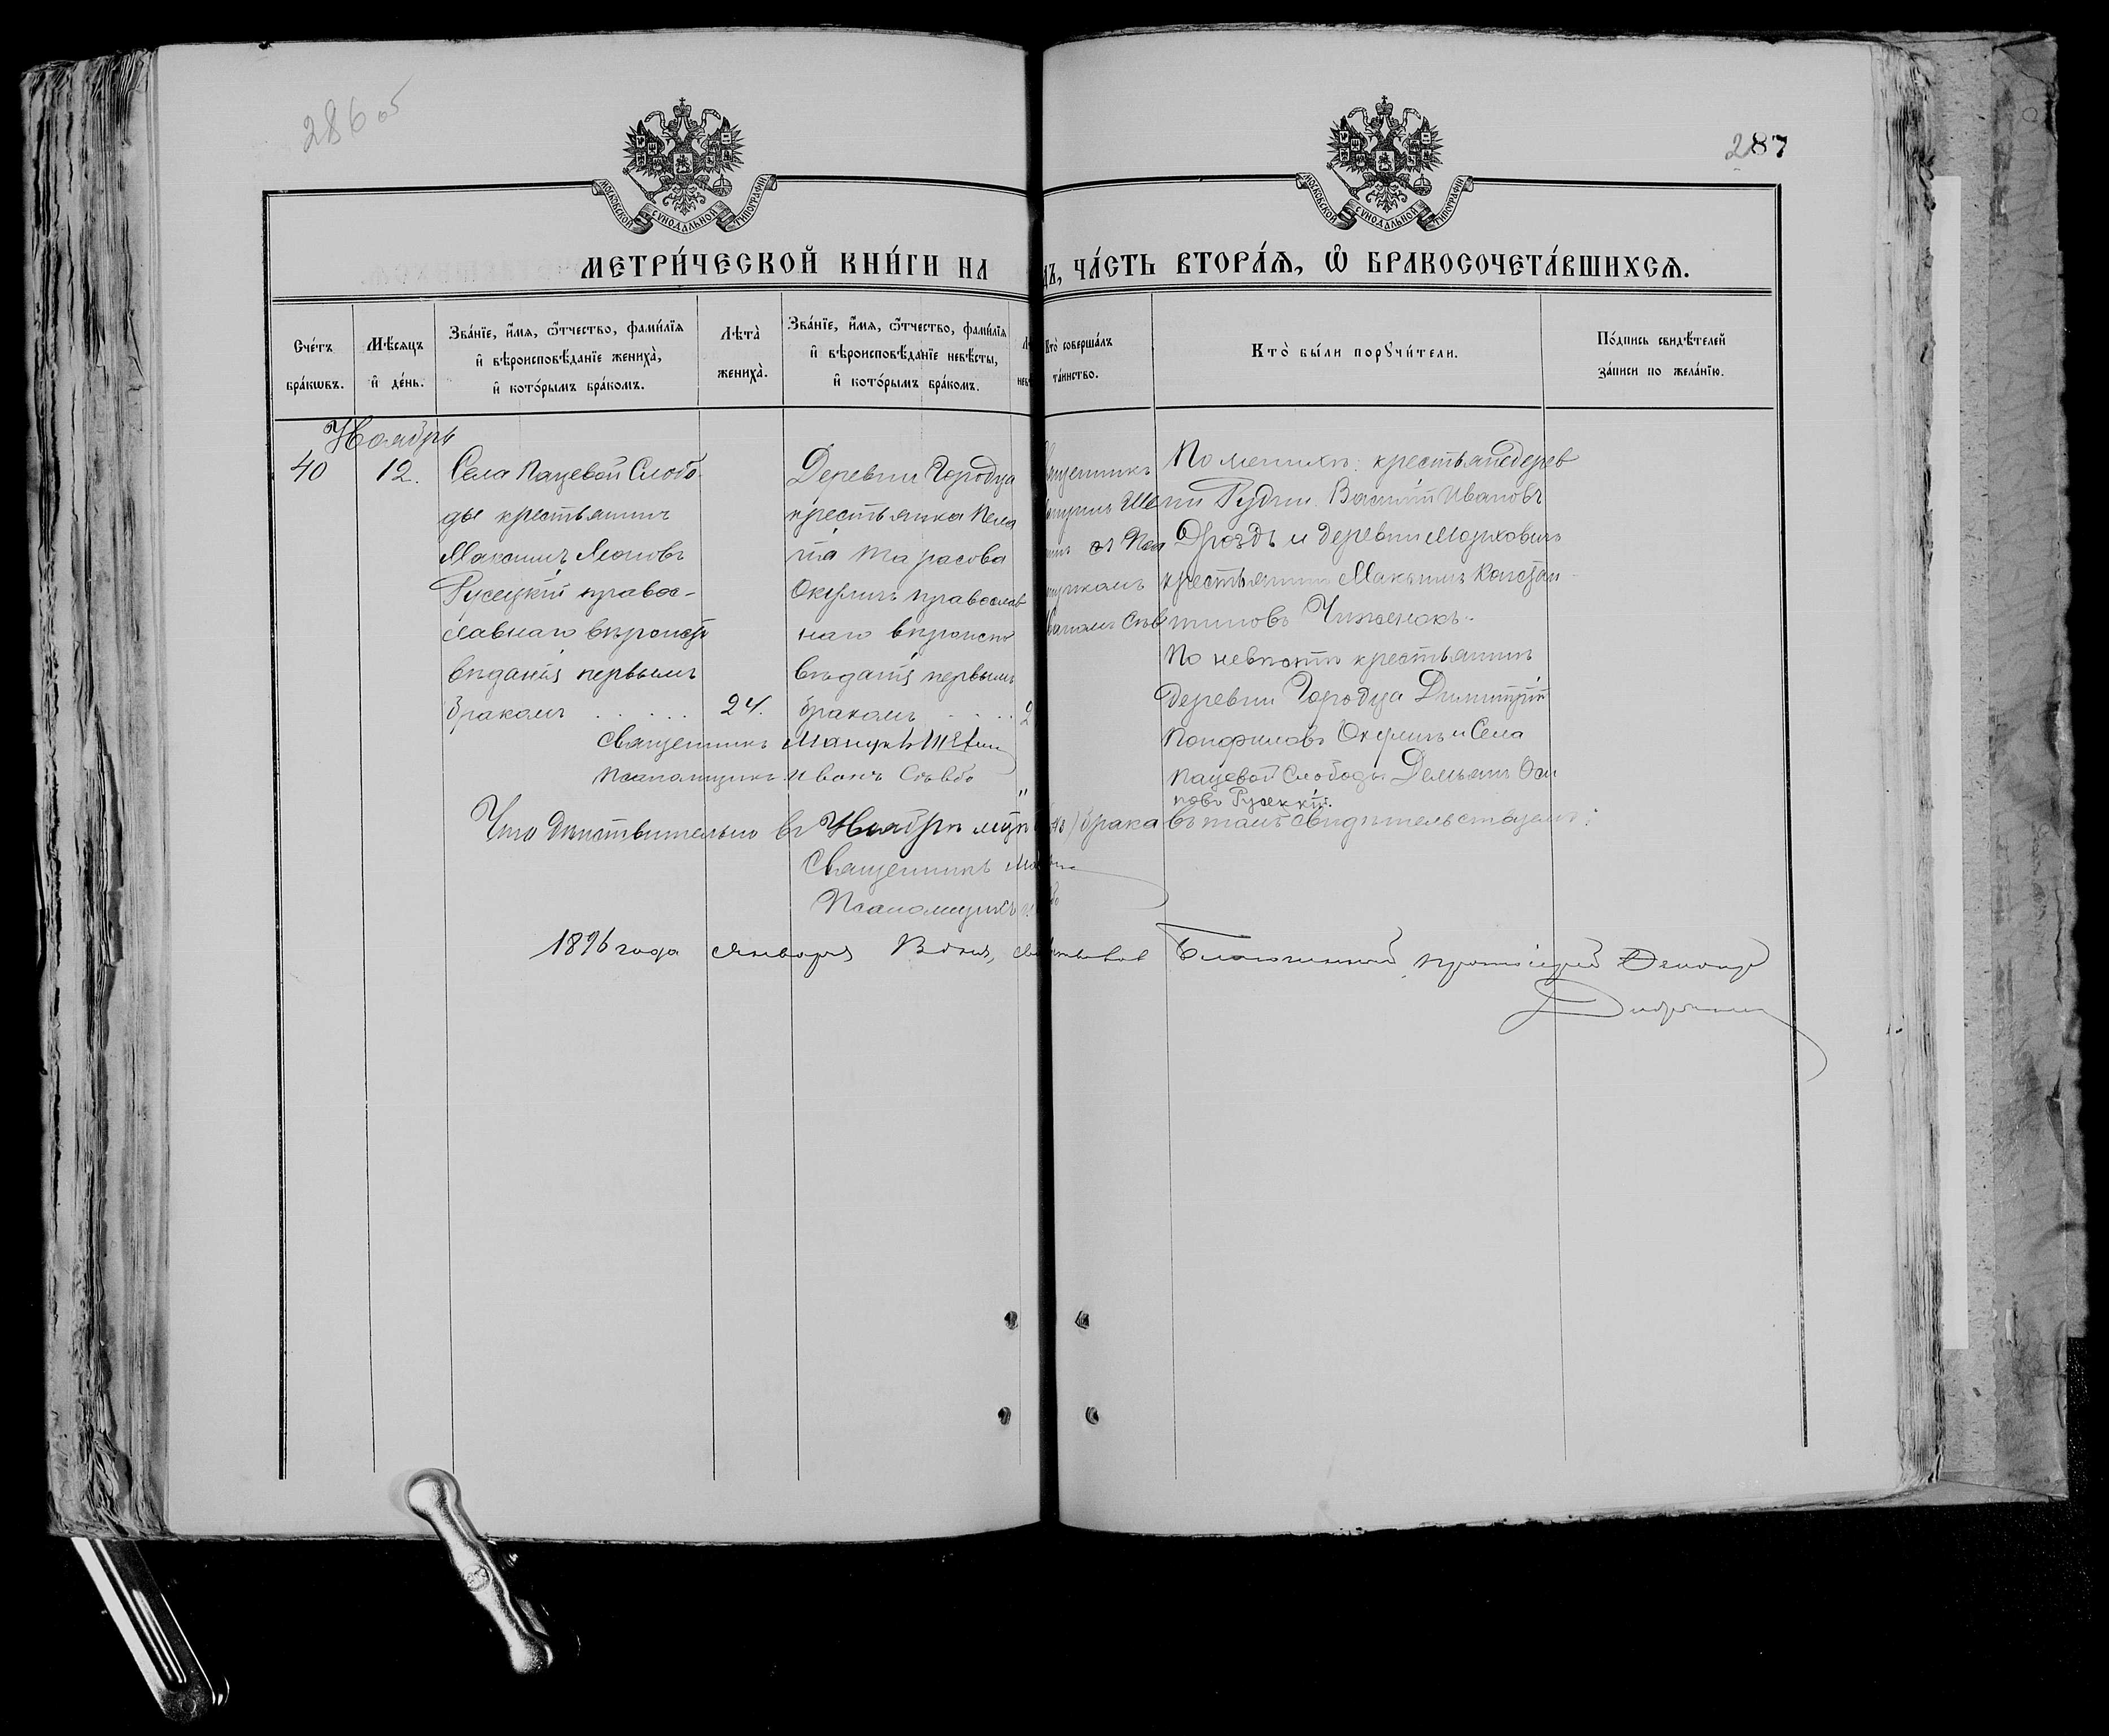 286 об
287
МОСКОВСКОЙ СѴНОДАЛЬНОЙ ТИПОГРАФІИ
МОСКОВСКОЙ СѴНОДАЛЬНОЙ ТИПОГРАФІИ
МЕТРИ́ЧЕСКОЙ КНИ́ГИ НА
ДЪ, ЧА́СТЬ ВТОРА́Я, Ѿ БРАКОСОЧЕТА́ВШИХСЯ.
Сче́тъ
бра́кωвъ.
Мѣ́сяцъ
и҆ де́нь.
Зва́нїе, и҆́мя, ѻ҆́тчество, фами́лїя
и҆ вѣроисповѣ́данїе жениха̀,
и҆ кото́рымъ бра́комъ.
Лѣта̀
жениха̀.
Зва́нїе, и҆́мя, ѻ҆́тчество, фами́лїя
и҆ вѣроисповѣ́данїе невѣ́сты,
и҆ кото́рымъ бра́комъ.
Кто̀ соверша́лъ
та́инство.
Кто̀ бы́ли порꙋчи́тели.
По́дпись свидѣ́телей
за́писи по жела́нїю.
Ноябрь
40
12.
Села Пацевой Слобо
ды крестьянинъ
Максимъ
Русецкій правос-
лавнаго вѣроиспо
вѣданія первымъ
бракомъ . . . . .
24.
Деревни Городца
крестьянка Пела
гія Тарасова
Окулич православ
наго вѣроиспо
вѣданія первымъ
бракомъ . . . .
2
По женихѣ: крестьяне дерев
ни Рудни Василій Ивановъ
Дроздъ и деревни
крестьянинъ Максимъ Констан-
тиновъ Чиженокъ.
По невѣстѣ крестьянинъ
деревни Городца Димитрій
Панфиловъ Окуличъ и Села
Пацевой Слободы Демьянъ Оси
повъ Русецкій.
Священникъ
Псаломщикъ Иванъ
Что дѣйствительно въ Ноябрѣ
брака въ томъ свидѣтельствуемъ:
Священникъ
Псаломщикъ
1896 года Января
Благочинный протоіерей